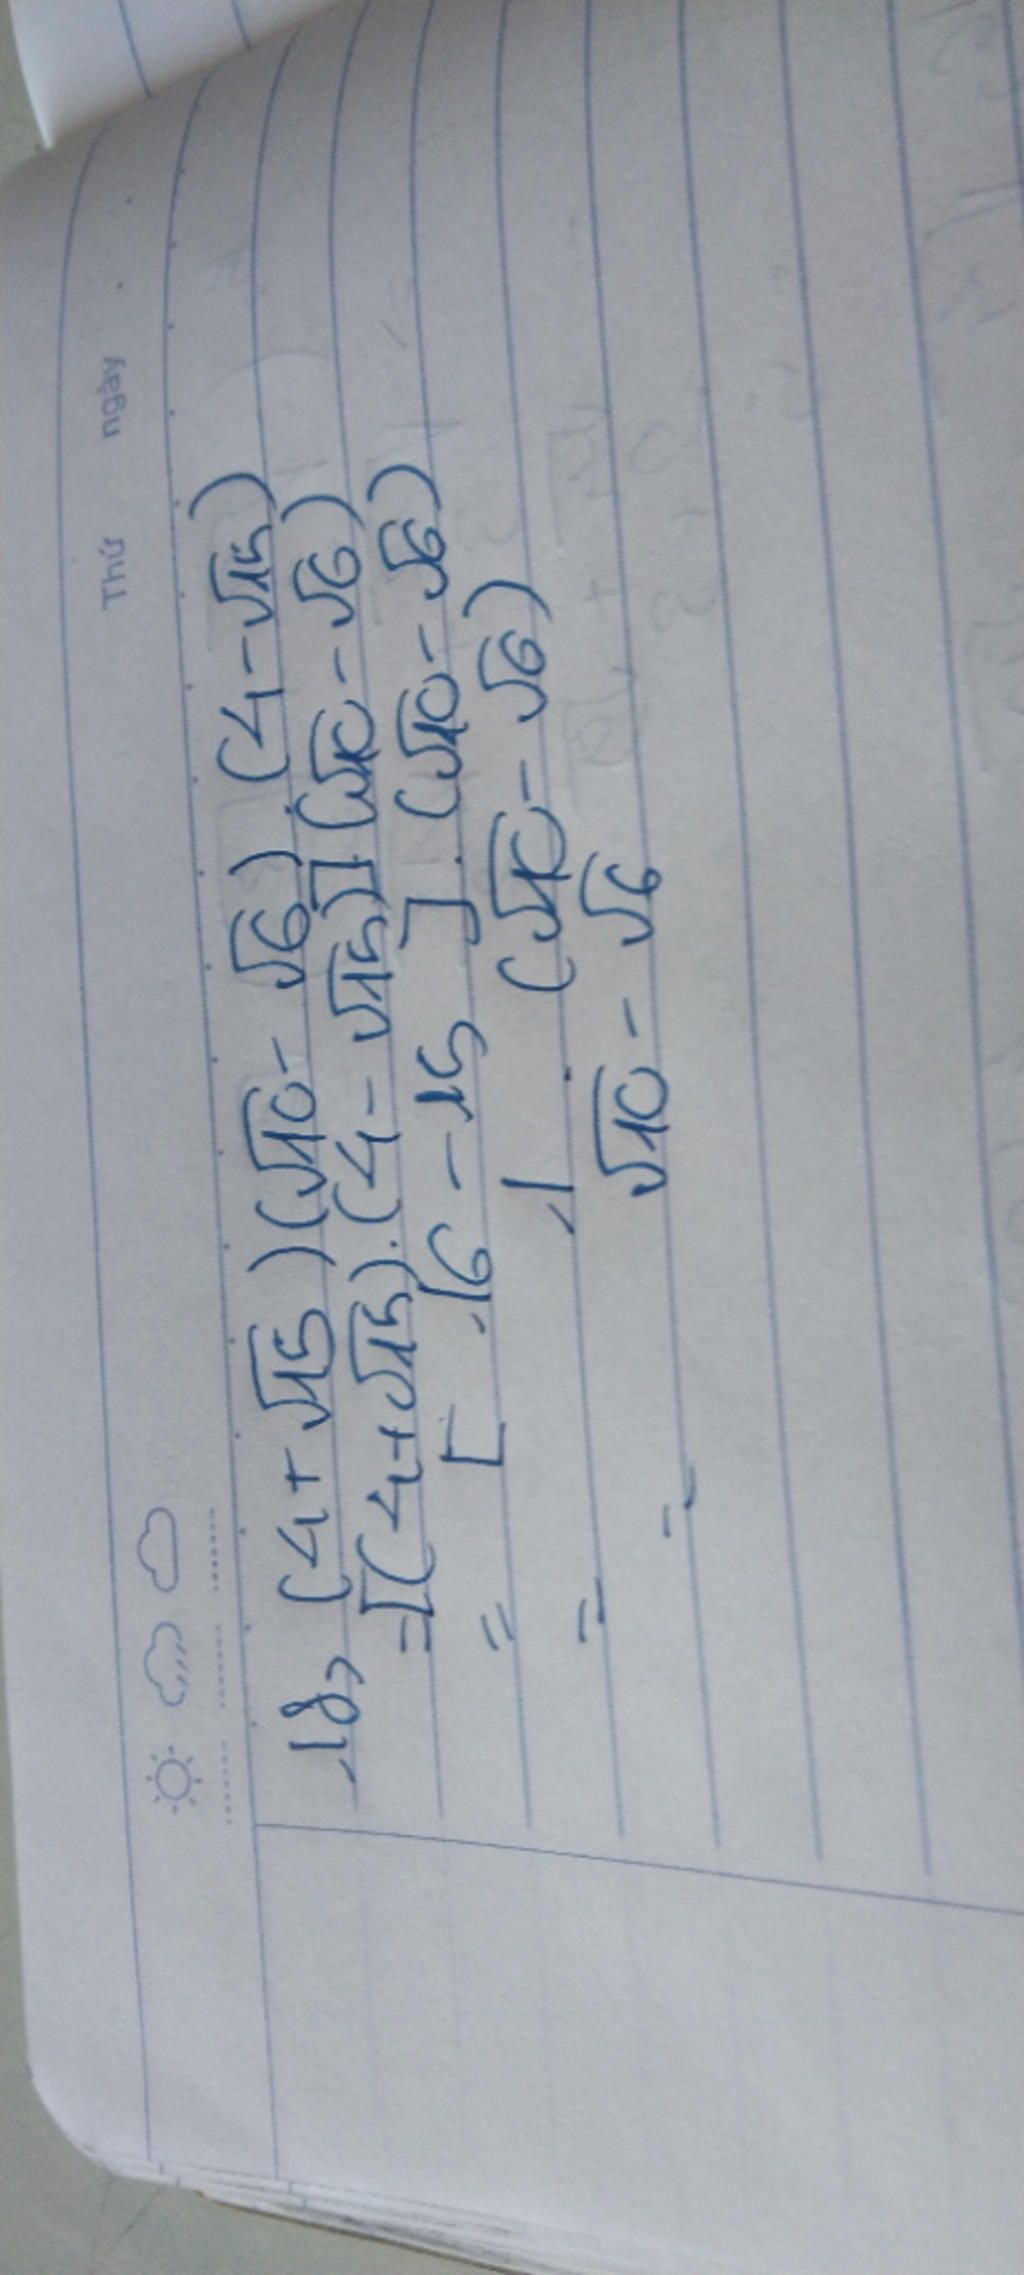 Thứ ngày
18, (4+√15)(√10-√6).(4-√15)
=[(4+√15).(4-√15)].(√10-√6)
= [16-15].(√10-√6)
= 1.(√10-√6)
= √10-√6